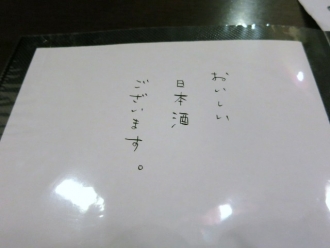 おいしい
日本酒
ございます。